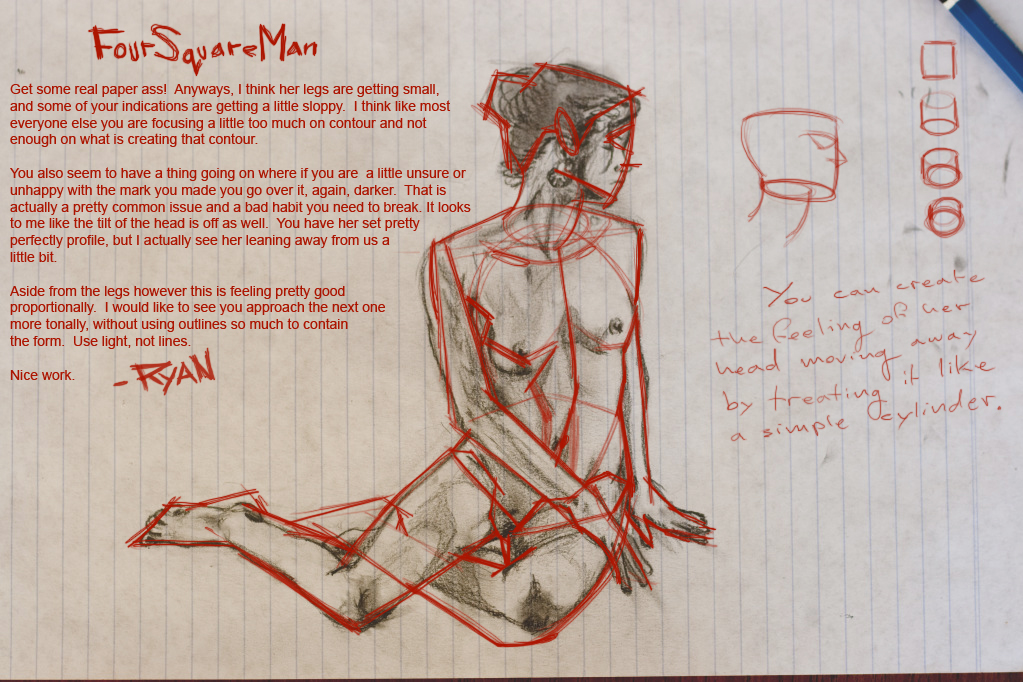 FourSquareMan
Get some real paper ass!  Anyways, I think her legs are getting small,
and some of your indications are getting a little sloppy.  I think like most
everyone else you are focusing a little too much on contour and not
enough on what is creating that contour.
You also seem to have a thing going on where if you are  a little unsure or
unhappy with the mark you made you go over it, again, darker.  That is
actually a pretty common issue and a bad habit you need to break. It looks
to me like the tilt of the head is off as well.  You have her set pretty
perfectly profile, but I actually see her leaning away from us a
little bit.
Aside from the legs however this is feeling pretty good
proportionally.  I would like to see you approach the next one
more tonally, without using outlines so much to contain
the form.  Use light, not lines.
Nice work.
- RYAN
You can create
the feeling of her
head moving away
by treating it like
a simple cylinder.